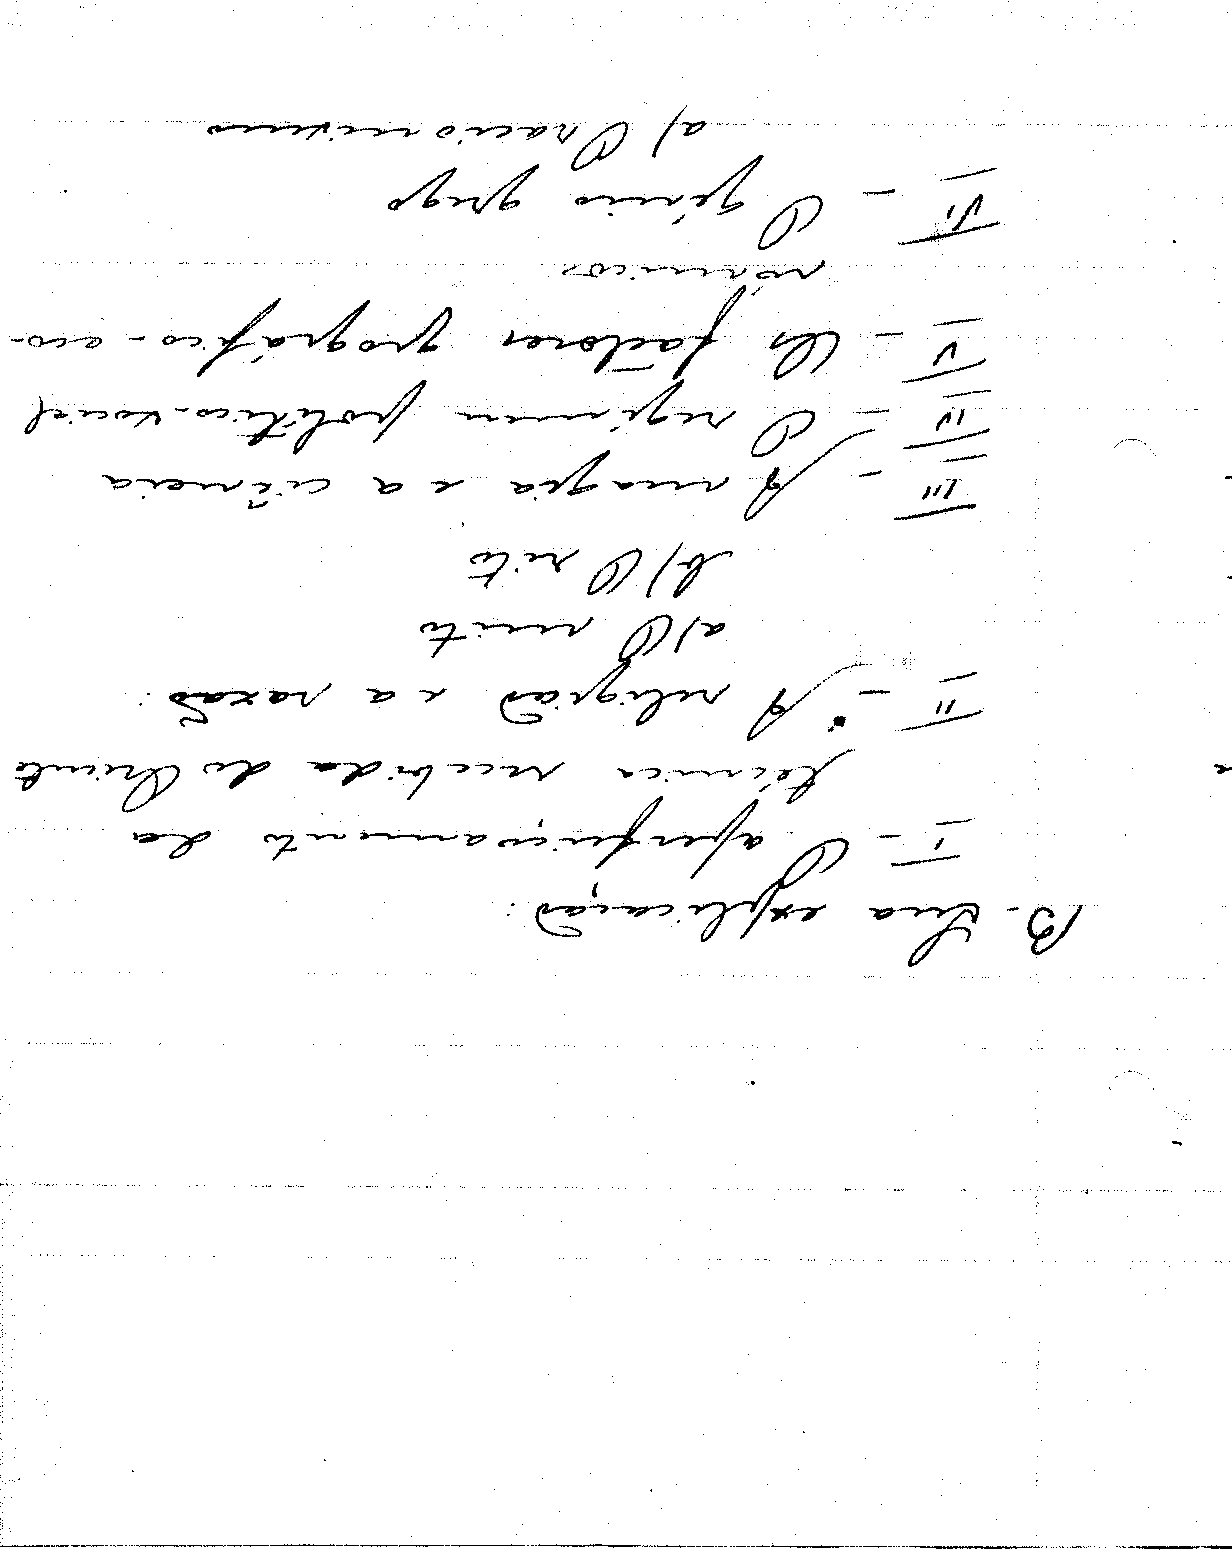 B. Sua explicação:
I - O aperfeiçoamento da
técnica recebida do Oriente
II - A religião e a razão:
a) O mito
b) O rito
III - A magia e a ciência
IV - O regimen político-social
V - Os factores geográfico-eco-
nómicos
VI - O génio grego
a) O racionismo